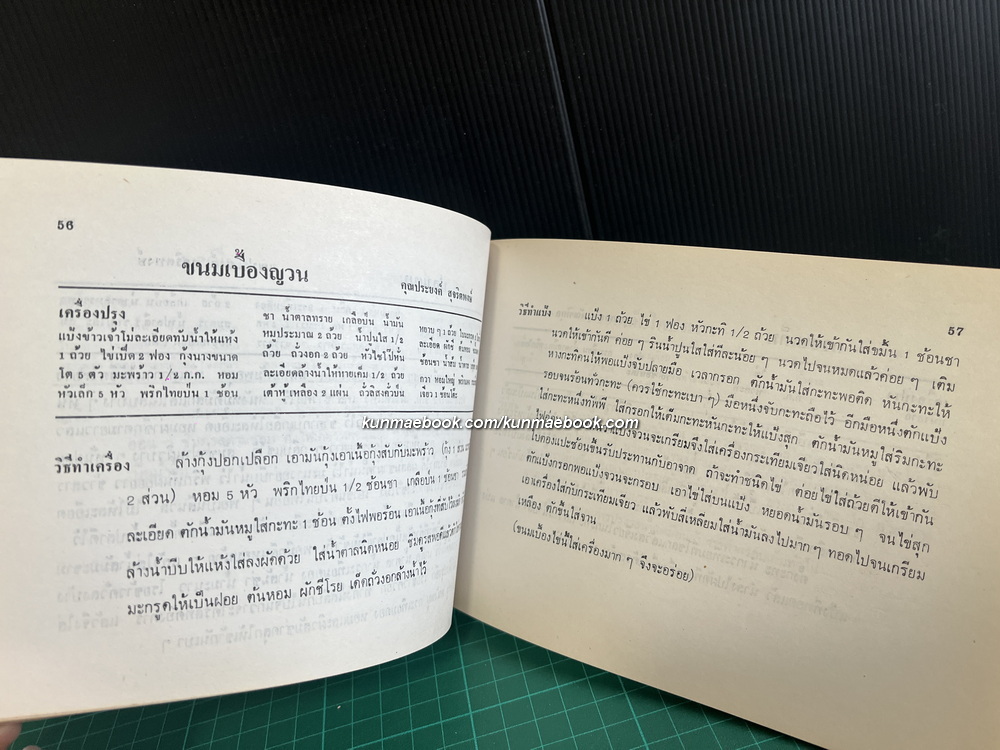 56
ขนมเบื้องญวน
คุณประยงค์
เครื่องปรุง
แป้งข้าวเจ้าโม่ละเอียดทับน้ำให้แห้ง
1 ถ้วย ไข่เป็ด 2 ฟอง กุ้งนางขนาด
โต 5 ตัว มะพร้าว 1/2 ก.ก. หอม
หัวเล็ก 5 หัว พริกไทยป่น 1 ช้อน
ชา น้ำตาลทราย เกลือป่น น้ำมัน
หมูประมาณ 2 ถ้วย น้ำปูนใส 1/2
ถ้วย ถั่วงอก 2 ถ้วย หัวไชโป๊หั่น
ละเอียดล้างน้ำให้หายเค็ม 1/2 ถ้วย
เต้าหู้เหลือง 2 แผ่น ถั่วลิสงคั่วป่น
หยาบ ๆ 1 ถ้วย
ละเอียด ผักชี
ช้อนชา
กวา หอมใหญ่
เจียว 1 ช้อนโต๊ะ
วิธีทำเครื่อง ล้างกุ้งปอกเปลือก เอามันกุ้งเอาเนื้อกุ้งสับกับมะพร้าว (กุ้ง 1 ส่วน
2 ส่วน) หอม 5 หัว พริกไทยป่น 1/2 ช้อนชา เกลือป่น 1 ช้อนชา
ละเอียด ตักน้ำมันหมูใส่กะทะ 1 ช้อน ตั้งไฟพอร้อน เอาเนื้อกุ้งที่สับไว้ลงผัด
ล้างน้ำบีบให้แห้งใส่ลงผัดด้วย ใส่น้ำตาลนิดหน่อย ชิมดูรสพอดีแล้ว
มะกรูดให้เป็นฝอย ต้นหอม ผักชีโรย เด็ดถั่วงอกล้างน้ำไว้
57
วิธีทำแป้ง แป้ง 1 ถ้วย ไข่ 1 ฟอง หัวกะทิ 1/2 ถ้วย นวดให้เข้ากันใส่ขมิ้น 1 ช้อนชา
นวดให้เข้ากันดี ค่อย ๆ รินน้ำปูนใสใส่ทีละน้อย ๆ นวดไปจนหมดแล้วค่อย ๆ เติม
หางกะทิคนให้พอแป้งจับปลายมือ เวลากรอก ตักน้ำมันใส่กะทะพอติด หันกะทะให้
รอบจนร้อนทั่วกะทะ (ควรใช้กะทะเบา ๆ) มือหนึ่งจับกะทะถือไว้ อีกมือหนึ่งตักแป้ง
ใส่กะทะหนึ่งทัพพี ใส่กรอกให้เต็มกะทะหันกะทะให้แป้งสุก ตักน้ำมันหมูใส่ริมกะทะ
แป้งจวนจะเกรียมจึงใส่เครื่องกระเทียมเจียวใส่นิดหน่อย แล้วพับ
ไปสองแปะซ้อนขึ้นรับประทานกับอาจาด ถ้าจะทำชนิดไข่ ต่อยไข่ใส่ถ้วยตีให้เข้ากัน
ตักแป้งกรอกพอแป้งจวนจะกรอบ เอาไข่ใส่บนแป้ง หยอดน้ำมันรอบ ๆ จนไข่สุก
เอาเครื่องใส่กับกระเทียมเจียว แล้วพับสี่เหลี่ยมใส่น้ำมันลงไปมาก ๆ ทอดไปจนเกรียม
เหลือง ตักขึ้นใส่จาน
(ขนมเบื้องไข่นี้ใส่เครื่องมาก ๆ จึงจะอร่อย)
kunmaebook.com/kunmaebook.com